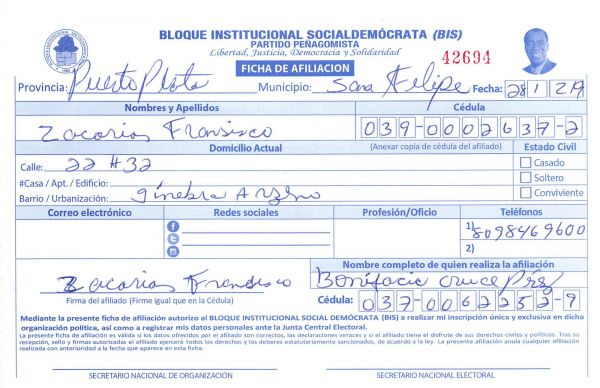 BLOQUE INSTITUCIONAL SOCIALDEMÓCRATA (BIS)
PARTIDO PEÑAGOMISTA
Libertad, Justicia, Democracia y Solidaridad
42694
FICHA DE AFILIACION
Provincia: Puerto Plata Municipio: San Felipe Fecha: 28 1 219
Nombres y Apellidos Cédula
Zacarias Fransisco 039-0002637-2
Domicilio Actual (Anexar copia de cédula del afiliado) Estado Civil
Calle: 22 #32 Casado
#Casa / Apt. / Edificio: Soltero
Barrio / Urbanización: Ginebra Arzeno Conviviente
Correo electrónico Redes sociales Profesión/Oficio Teléfonos
1) 8098469600
2)
Nombre completo de quien realiza la afiliación
Zacarias Francisco Bonifacio cruce
Firma del afiliado (Firme igual que en la Cédula) Cédula: 037-0062252-9
Mediante la presente ficha de afiliación autorizo al BLOQUE INSTITUCIONAL SOCIAL DEMÓCRATA (BIS) a realizar mi inscripción única y exclusiva en dicha
organización política, así como a registrar mis datos personales ante la Junta Central Electoral.
La presente ficha de afiliación es válida si los datos ofrecidos por el afiliado son correctos, las declaraciones veraces y si el afiliado tiene el disfrute de sus derechos civiles y políticos. Tras su
recepción, sello y firmas autorizadas el afiliado ejercerá todos los derechos y los deberes estatutariamente sancionados, de acuerdo a la ley. La presente afiliación anula cualquier afiliación
realizada con anterioridad a la fecha que aparece en esta ficha.
SECRETARIO NACIONAL DE ORGANIZACIÓN SECRETARIO NACIONAL ELECTORAL